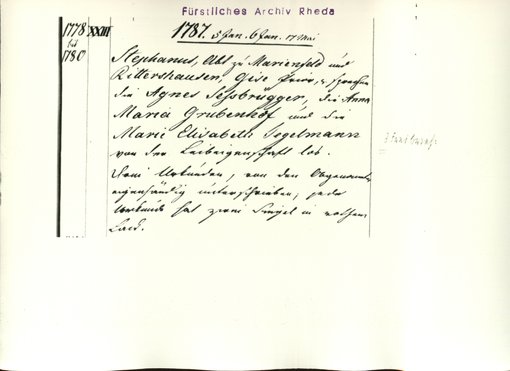 Fürstliches Archiv Rheda
1778 XXIII
bis
1780
1787. 5 Jan. 6 Jan. 17 Mai
Stephanus, Abt zu Marienfeld und
Rittershausen, Gise Prior, sprechen
die Agnes Sessbrügger, die Anna
Maria Grubenhof und die
Marie Elisabeth Togelmann
von der Leibeigenschaft los.
Drei Urkunden, von den Obgenannten
eigenhändig unterschrieben, jede
Urkunde hat zwei Siegel in rothem
Lack.